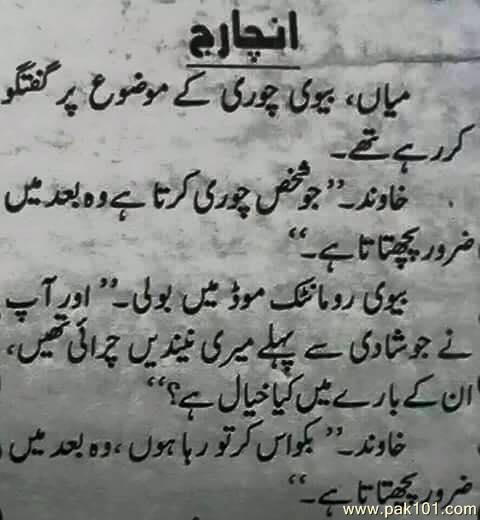 انچارج
میاں، بیوی چوری کے موضوع پر گفتگو
کر رہے تھے۔
خاوند۔”جو شخص چوری کرتا ہے وہ بعد میں
ضرور پچھتاتا ہے۔“
بیوی رومانٹک موڈ میں بولی۔”اور آپ
نے جو شادی سے پہلے میری نیندیں چرائی تھیں،
ان کے بارے میں کیا خیال ہے؟“
خاوند۔”بکواس کر تو رہا ہوں، وہ بعد میں
ضرور پچھتاتا ہے۔“
www.pak101.com